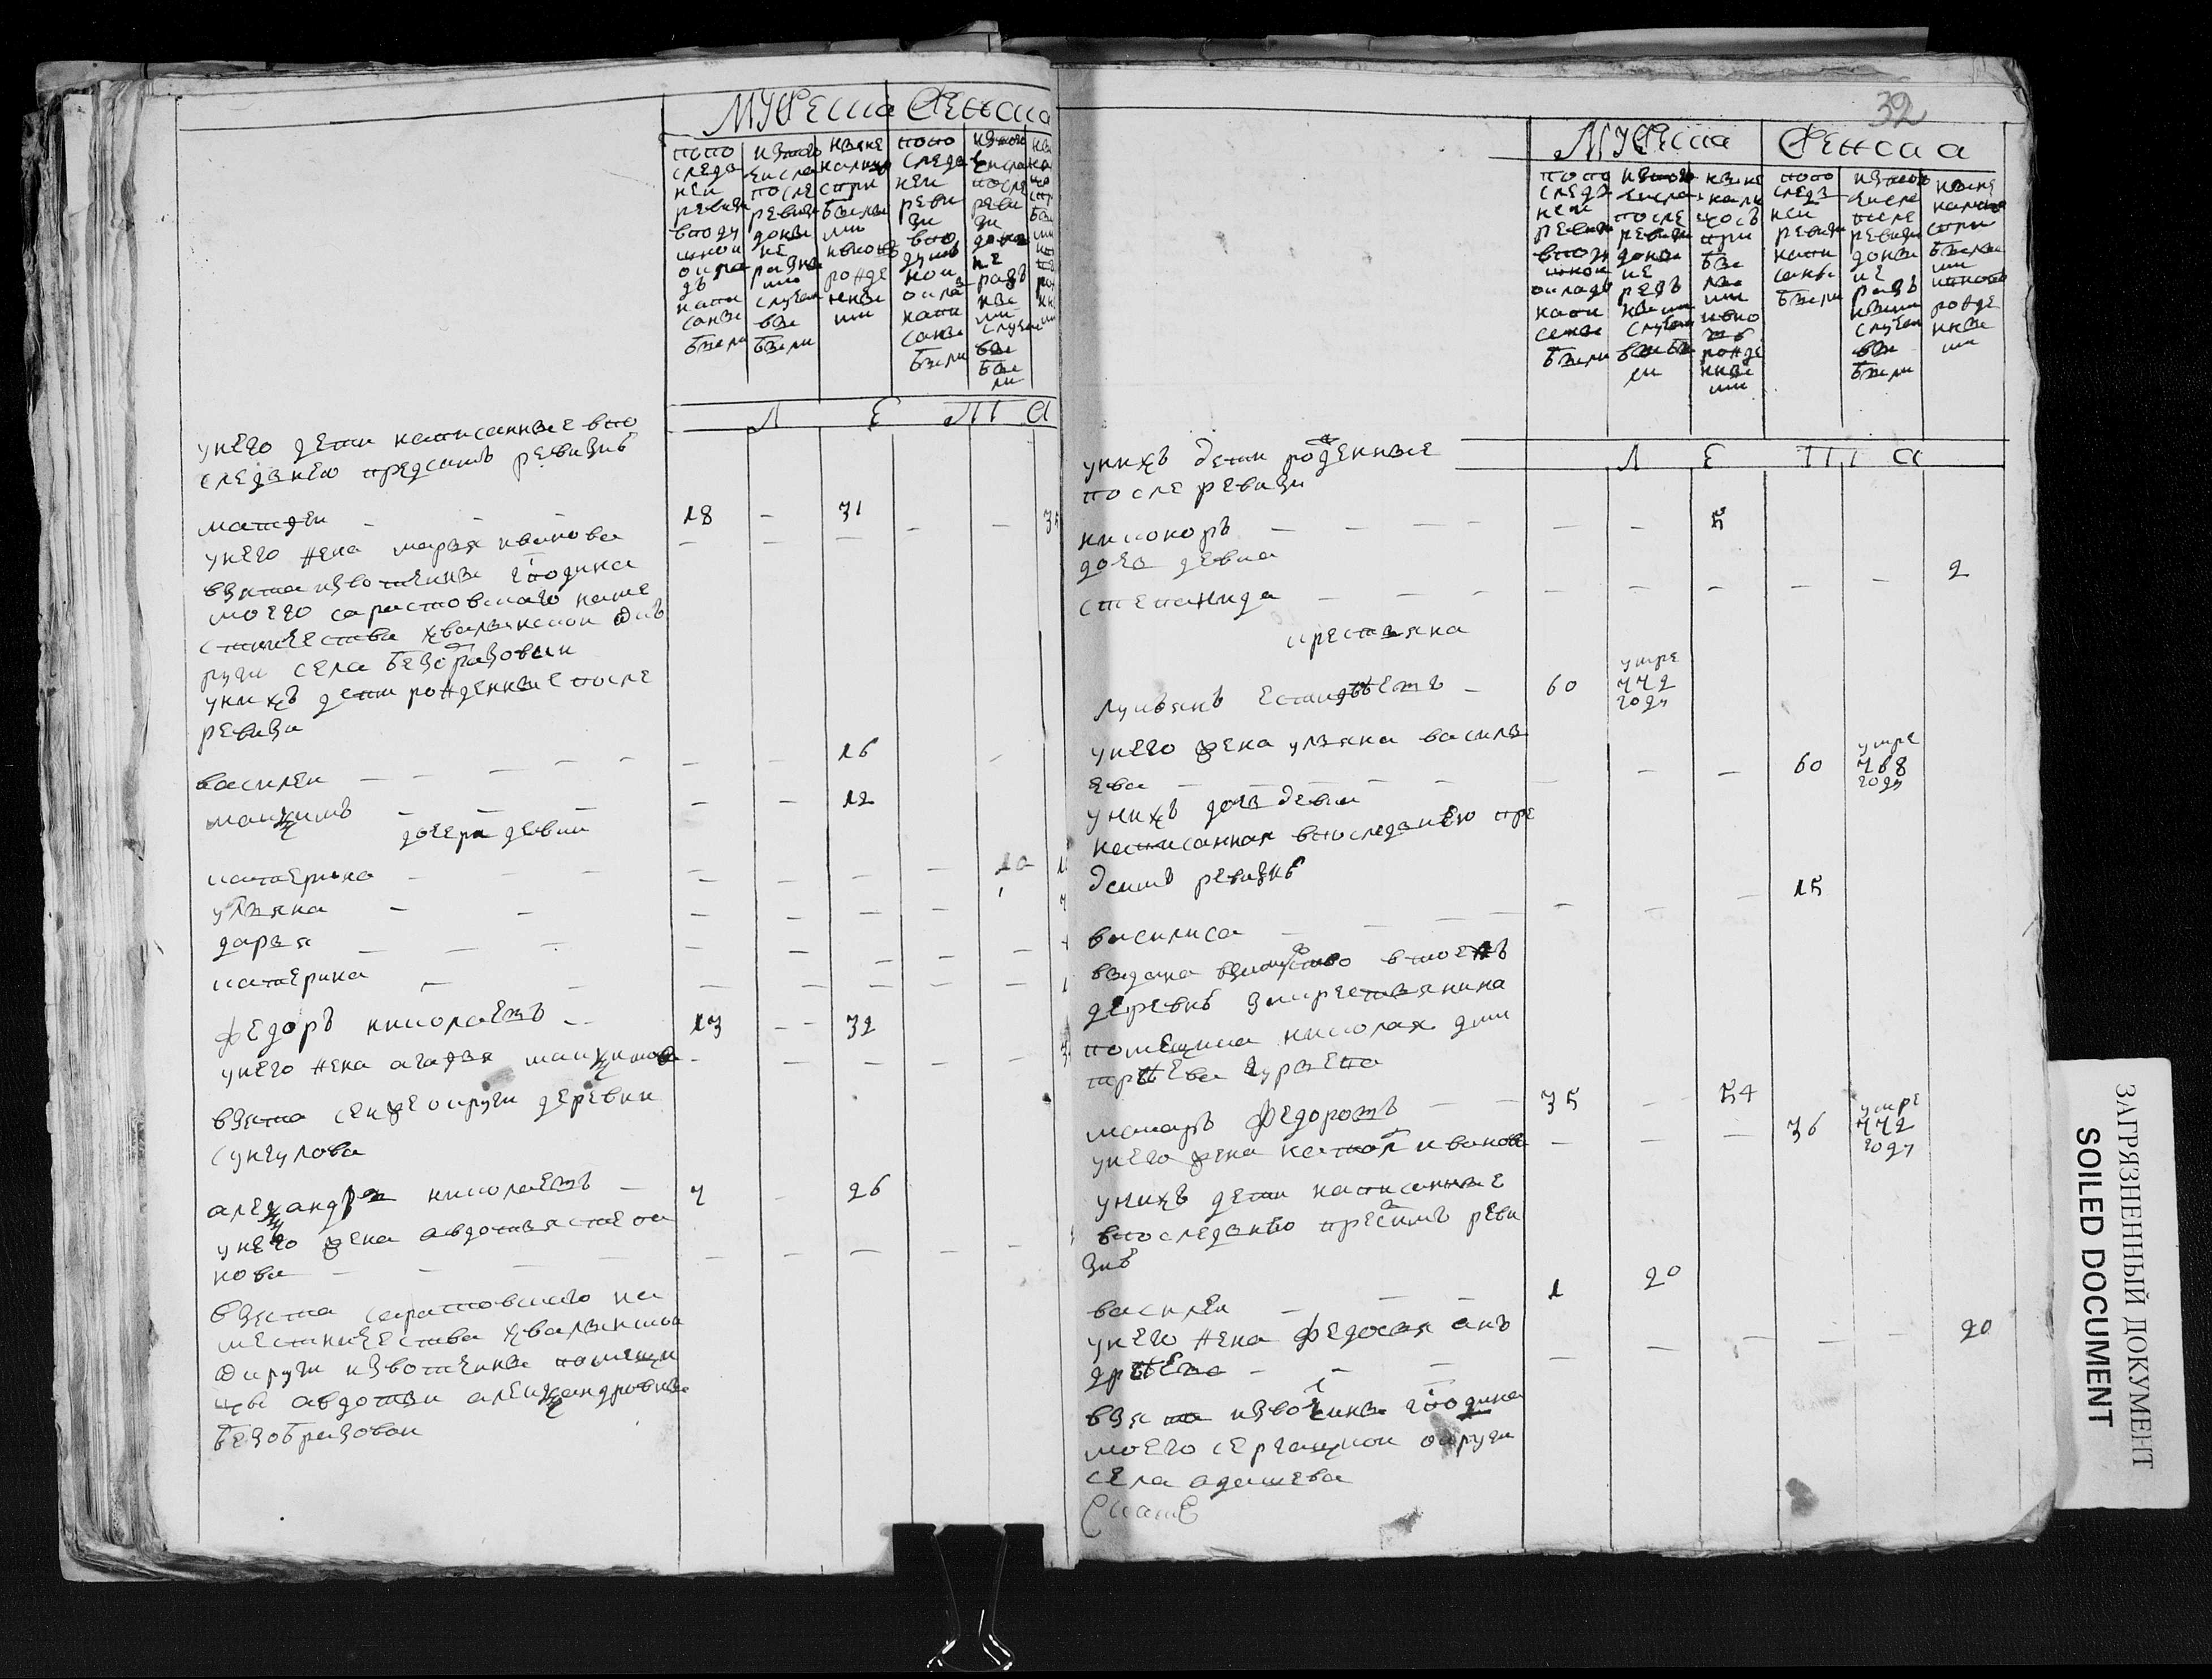 мужеска женска
попо
следн
ней
ревизи
вподу
шной
окла
дъ
напи
саны
были
изтого
числа
после
ревизи
доны
не
разны
ми
случая
вы
были
ныне
налицо
спри
былы
ми
ивнов
рожде
нны
ми
попо
следн
ней
реви
зи
впо
душно
ной
окла
напи
саны
были
изтого
числа
после
реви
зи
доны
не
разъ
ны
ми
случая
вы
бы
ли
Л Е Т А
унего дети написанные впо
следнею предсимъ ревизиѣ
матфеи 18 - 31
унего жена марья иванова
взята извотчины гдодина
моего саратовскаго наме
стничества хвалынской ок
руги села безобразовки
унихъ дети рожденные после
ревизи
василеи 16
макъимъ 12
дочери девки
катерина 10
ульяна
дарья
катерина
федоръ николаевъ 13 -- 32
унего жена агафья макъимова
взята сейже округи деревни
сунгулова
александра николаевъ 7 - 26
унего жена авдотья степа
нова
взята саратовскаго на
местничества хвалынской
округи извотчины помещи
цы авдотьи алеиксандровны
безобразовои
32
мужеска женска
попо
следн
ней
ревизи
вподу
шной
окладъ
напи
саны
были
изтого
числа
после
ревизи
доны
не
разъ
ными
случая
выбы
ли
ныне
нали
цось
при
бы
лы
ми
ивно
въ
рожде
нны
ми
попо
следн
ней
ревизи
напи
саны
были
изтого
числа
после
ревизи
доны
не
разъ
ными
случая
вы
были
ныне
налицо
спри
былы
ми
ивново
рожде
нны
ми
Л Е Т А
унихъ дети рожденные
после ревизи
никоноръ 5
дочь девка
степанида 2
крестьяна
лукьянъ естифѣевъ 60 умре 772 году
унего жена ульяна василь
ева 60 умре 768 году
унихъ дочь девка
написанная впоследнею пре
дсимъ ревизиѣ
василиса 15
выдана взамужство втоежъ
деревнѣ закрестьянина
помещика николая дми
трѣева
макаръ федоровъ 35 - 54
унего жена иванова 36 умре 772 году
унихъ дети написанные
впоследнѣю пресимъ реви
зиѣ
василеи 1 20
унего жена федосья анъ
дрѣева 20
взята извотчины гдодина
моего сергацкои округи
села адашева
ЗАГРЯЗНЕННЫЙ ДОКУМЕНТ
SOILED DOCUMENT